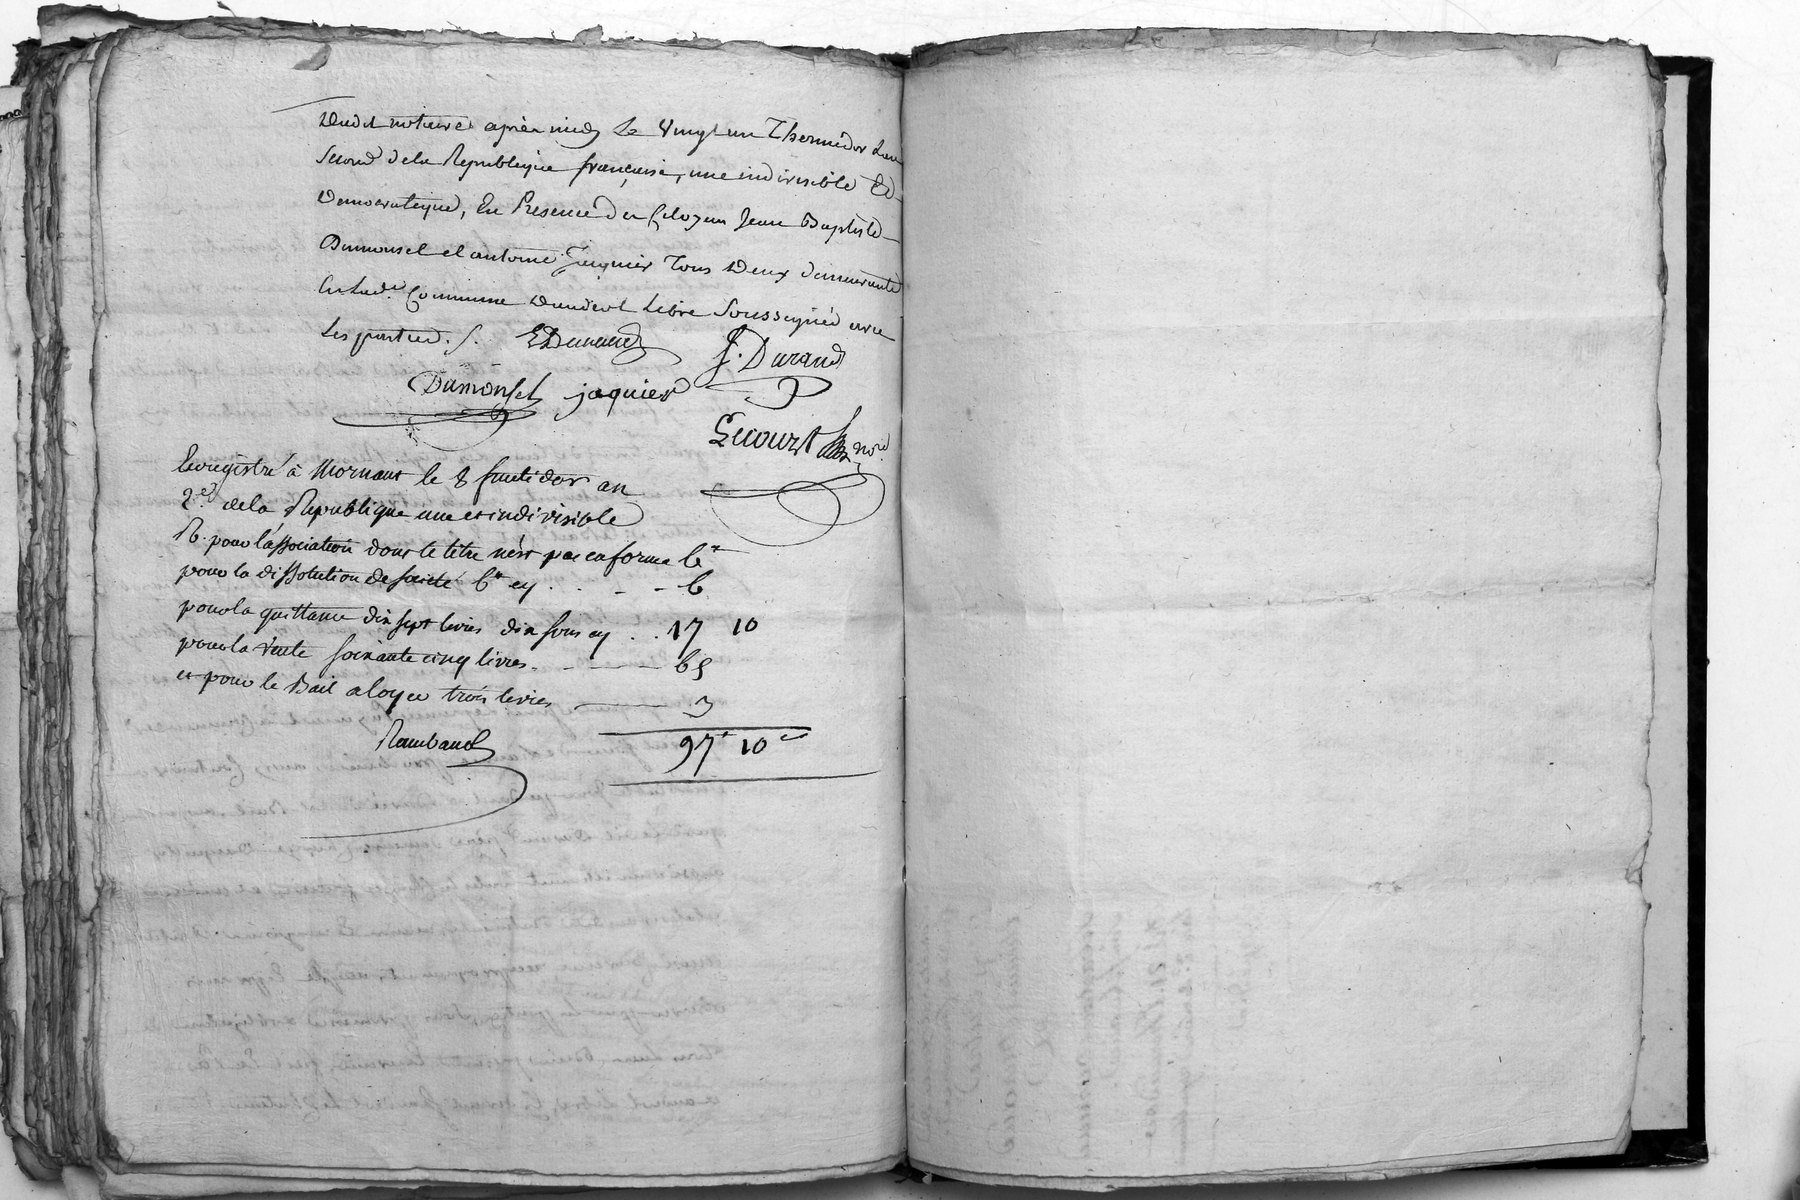 dudit notaire après midy le vingt un Thermidor Lan
second de la Republique francaise, une indivisible Et
Democratique, En Presence des Citoyens Jean Baptiste
Dumonsel et antoine Jaquier Tous deux demeurants
En lad.e Commune Landeol Libre soussignés avec
Les parties. /.
EDurand
J. Durand
Dumonsel jaquier
Lecourt nore
Enregistré à Mornant le 8 fructidor an
2.e de la Republique une et indivisible
R. pour l'association dont le titre n'est pas en forme 6#
pour la dissolution de societé 6# cy . . - - 6
pour la quittance dix sept livres dix sous cy . . 17 10
pour la vente soixante cinq livres - - 65
et pour le Bail a loyer trois livres 3
Rambaud
97# 10s